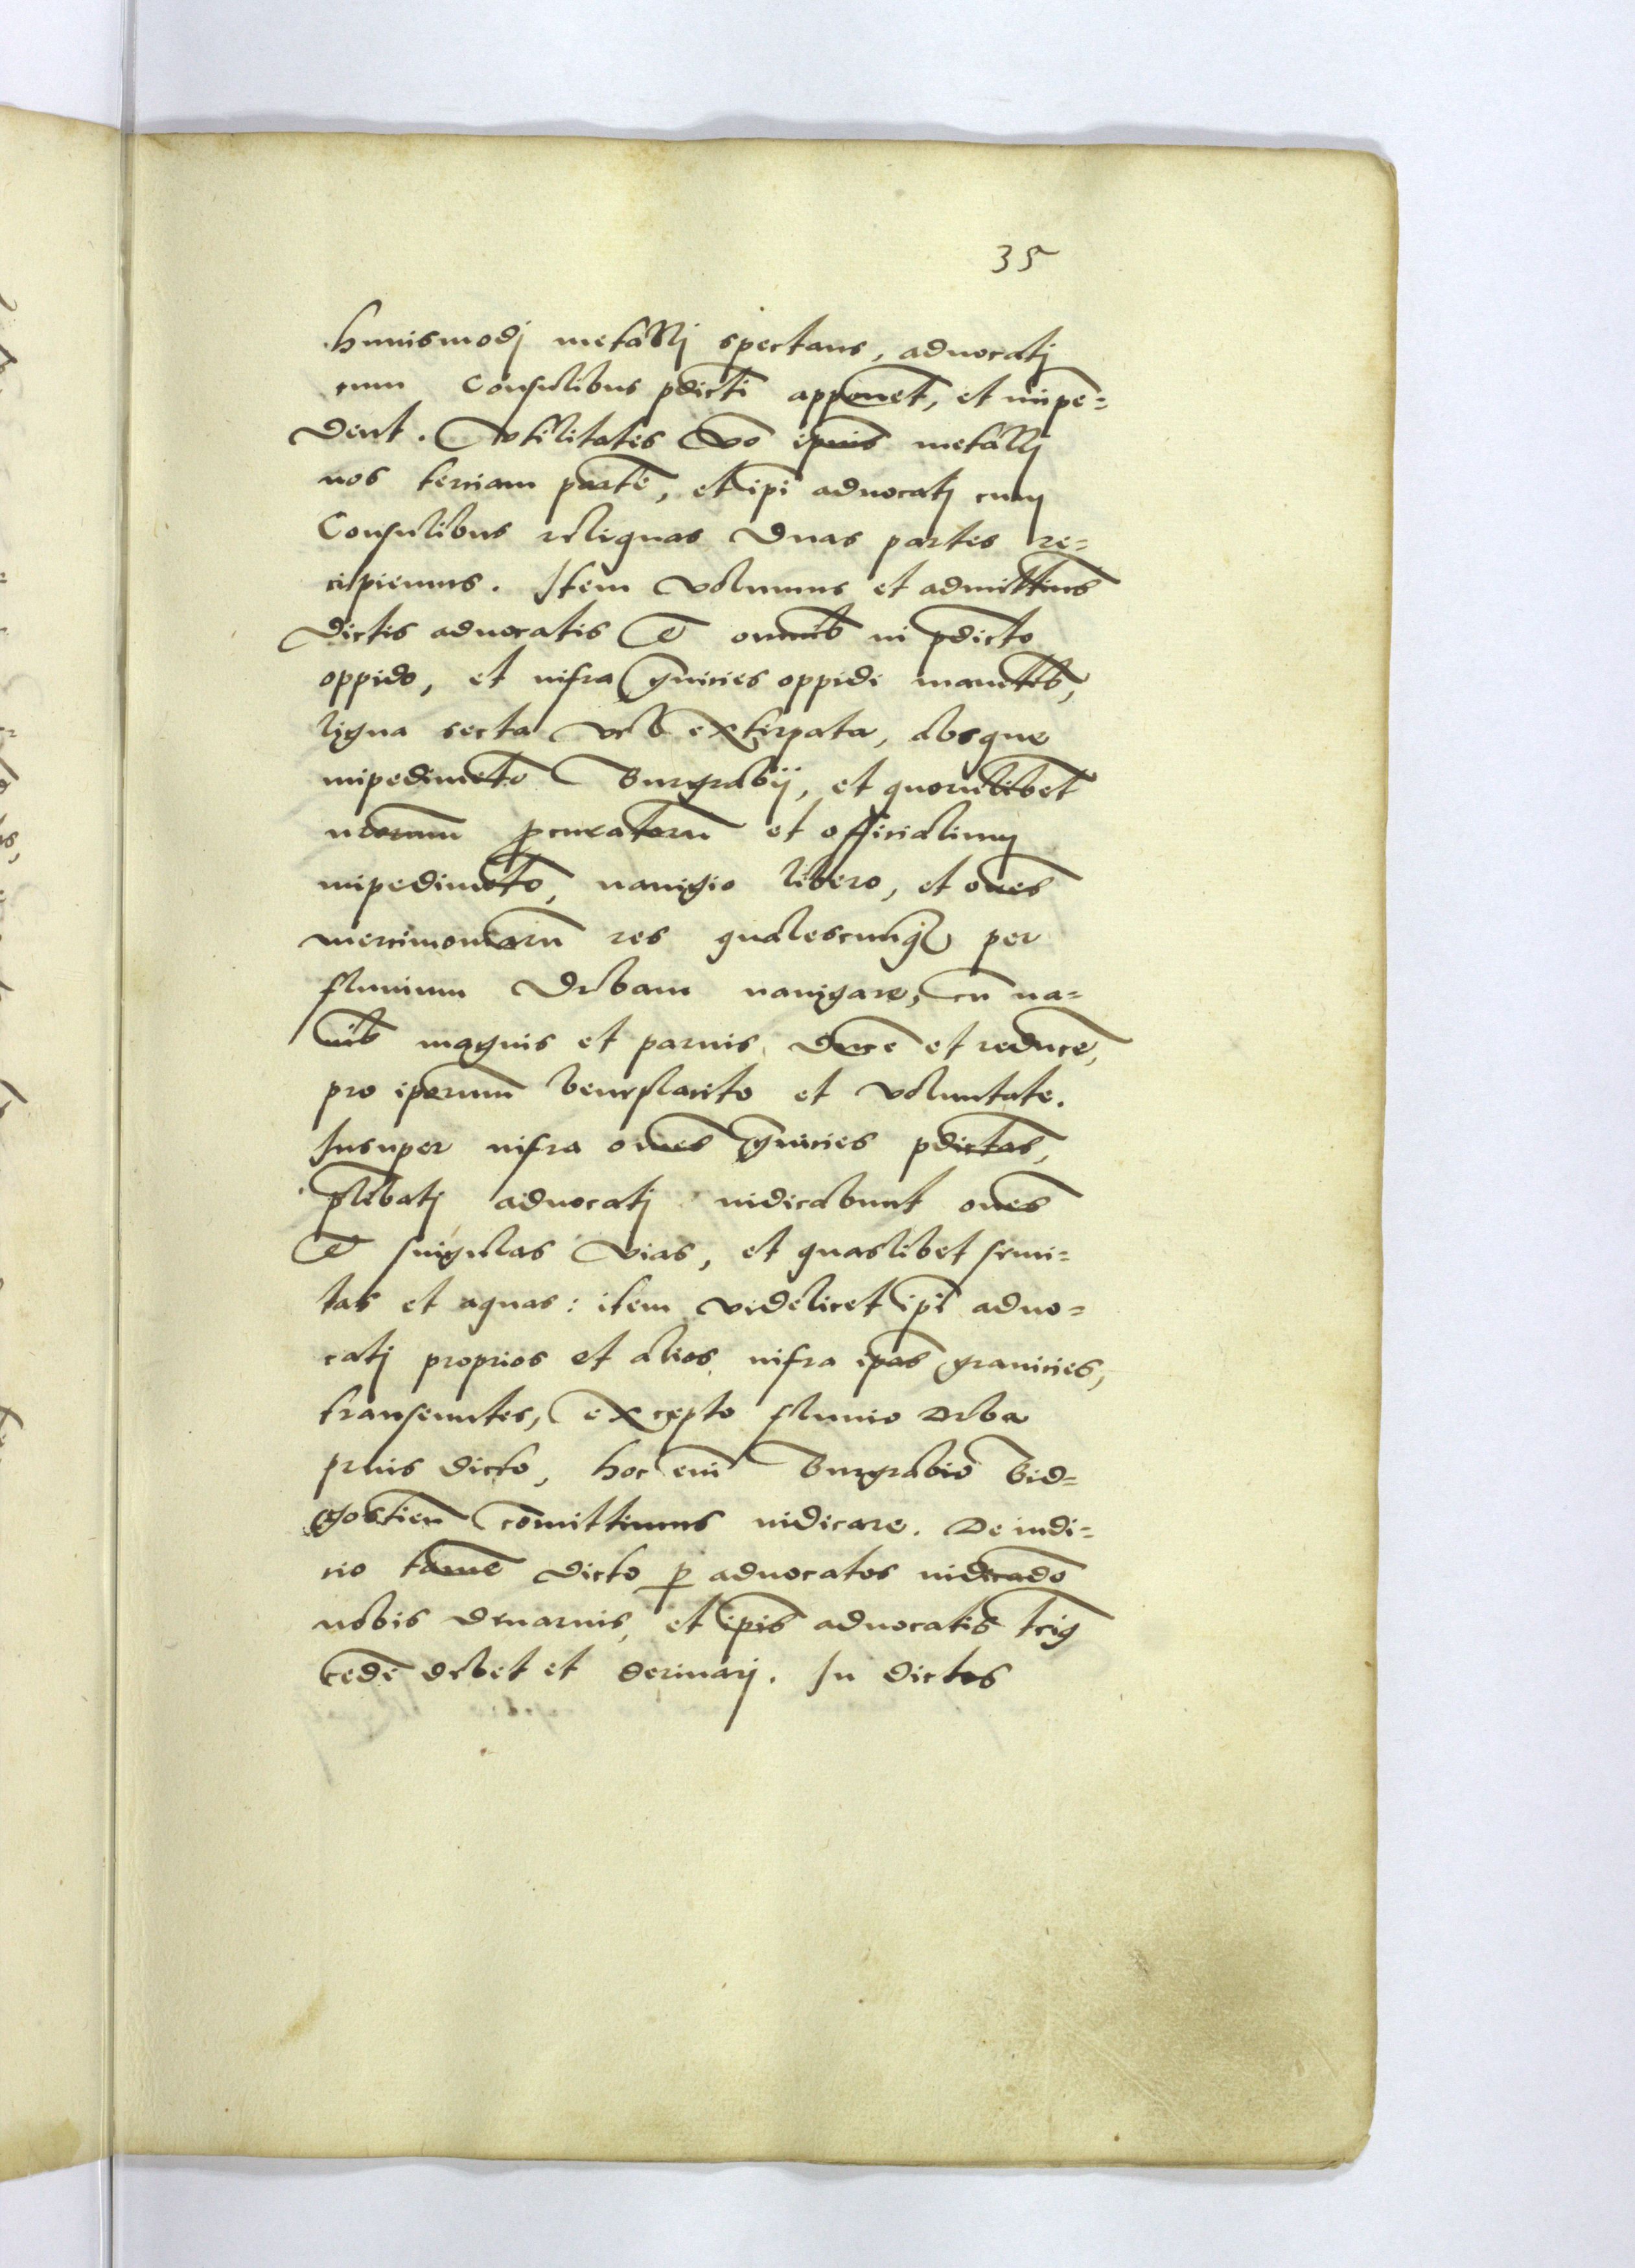 35
huiusmodj metallj spectans, aduocatj
cum Consulibus pdicti apponēt, et impe=
dent. Vtilitatis vō ipīus metallj
nos terciam partē, et ipi aduocatj cum
Consulibus reliquas duas partes re=
cipiemus. Item volumus et admittim9
dictis aduocatis & omnib in pdicto
oppido, et infra gnicies oppidi manētib,
ligna secta vel extirpata, absque
impedimēto Burgrabij, et quorūlibet
nrorum pcuratorū et officialium
impedimēto, nauigio libero, et oēs
mercimoniarū res qualescunq per
fluuium Debam nauigare, cū na=
uib magnis et paruis, ducē et reducē,
pro ipsorum beneplacito et voluntate.
Insuper infra ones gnicies pdictas,
plibatj aduocatj iudicabunt ones
& singulas vias, et quaslibet semi=
tas et aquas: item videlicet ipi aduo=
catj proprios et alios infra ipas granicies,
transeuntes, excepto fluuio Deba
prius dicto, hoc eni Burgrabio Bid=
gostien comittimus iudicare. De iudi=
cio tamē dicto p aduocatos iudicādo
nobis denarius, et ipis aduocatis
cedē debet et deriuarj. In dictos